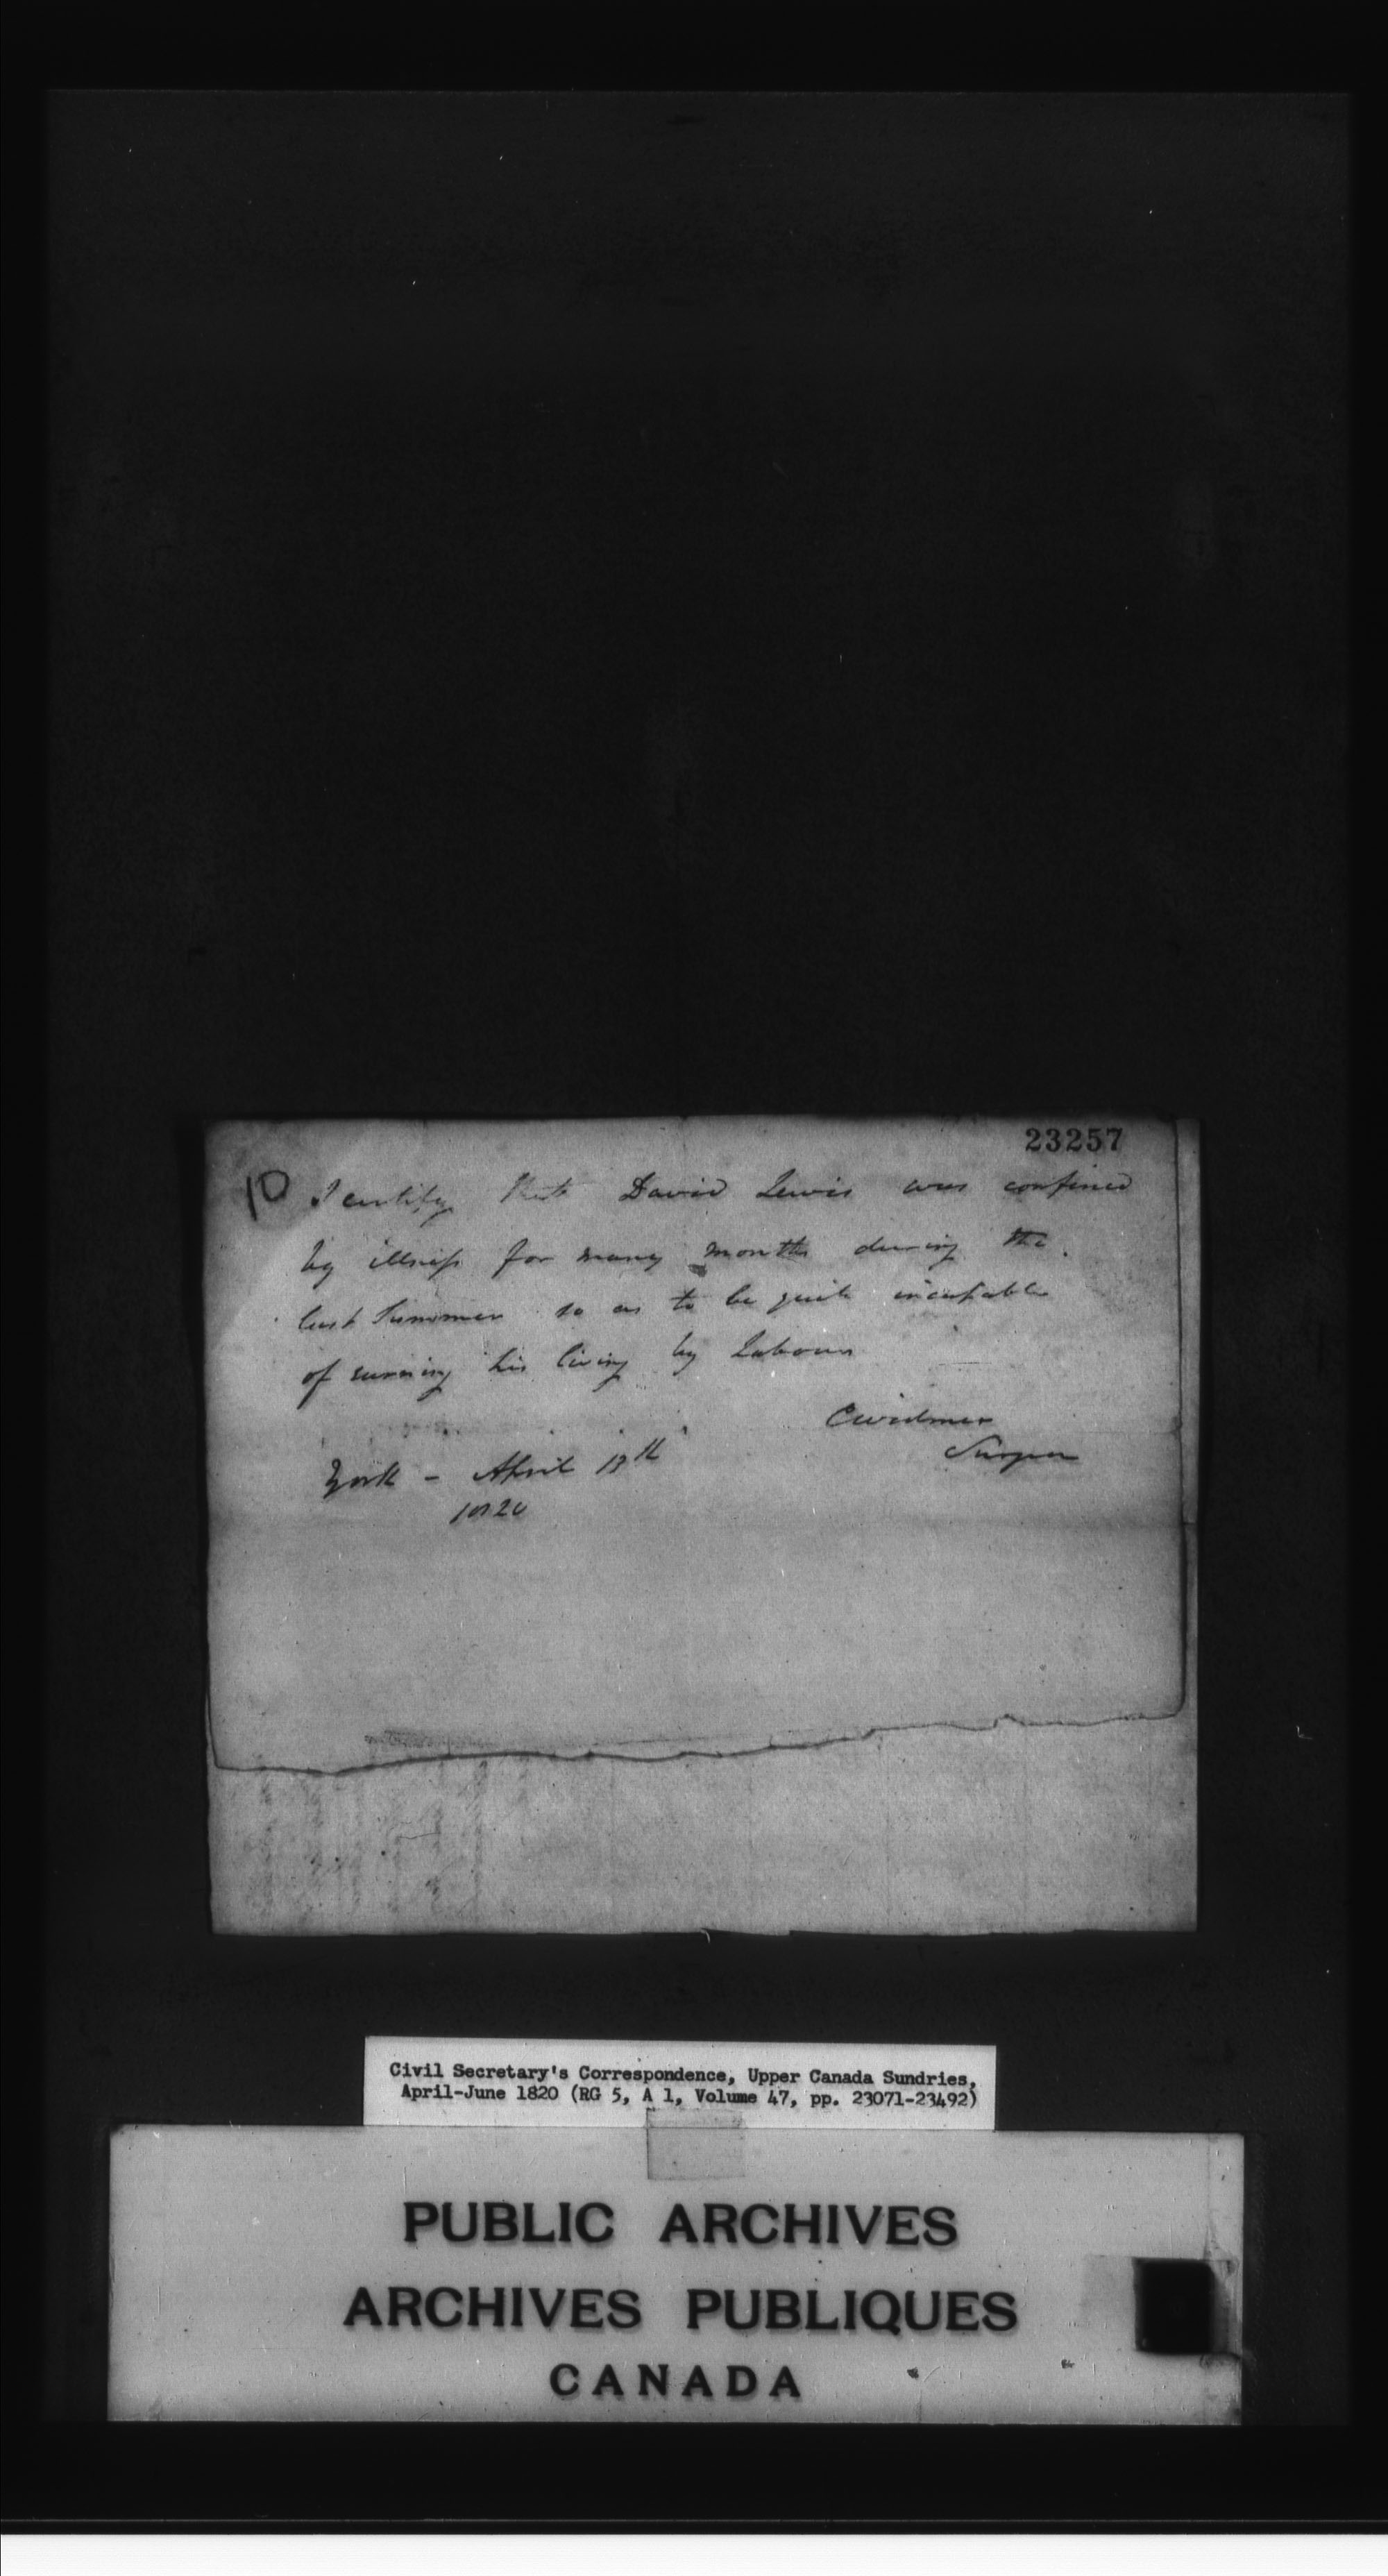 23257
10 I certify that David Lewis was confined
by illness for many months during the
last Summer so as to be quite incapable
of earning his living by Labour
CWidmer
Surgeon
York - April 13th
1820
Civil Secretary's Correspondence, Upper Canada Sundries,
April-June 1820 (RG 5, A 1, Volume 47, pp. 23071-23492)
PUBLIC ARCHIVES
ARCHIVES PUBLIQUES
CANADA